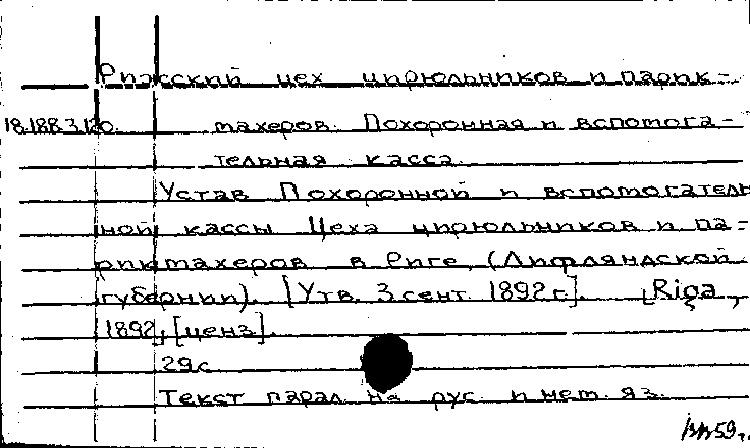 Рижский цех цирюльников и парик-
18.188.3.120. махеров. Похоронная и вспомога-
тельная касса.
Устав Похоронной и вспомогатель
ной кассы Цеха цирюльников и па-
рикмахеров в Риге, (Лифляндской
губернии). [Утв. 3 сент. 1892 г.]. [Riga,
1892, [ценз].
29с
Текст парал. на рус. и нем. яз.
59г.